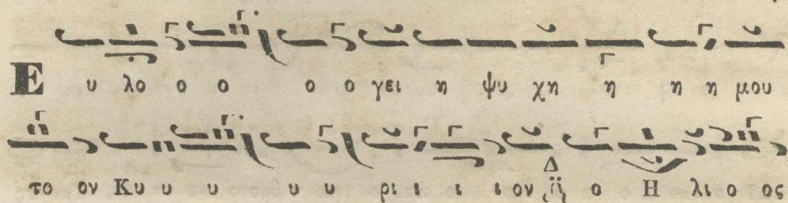 Ε υ λο ο ο ο ο γει η ψυ χη η η η μου
το ον Κυ υ υ υ υ ρι ι ι ι ον Δ ο Η λι ο ος